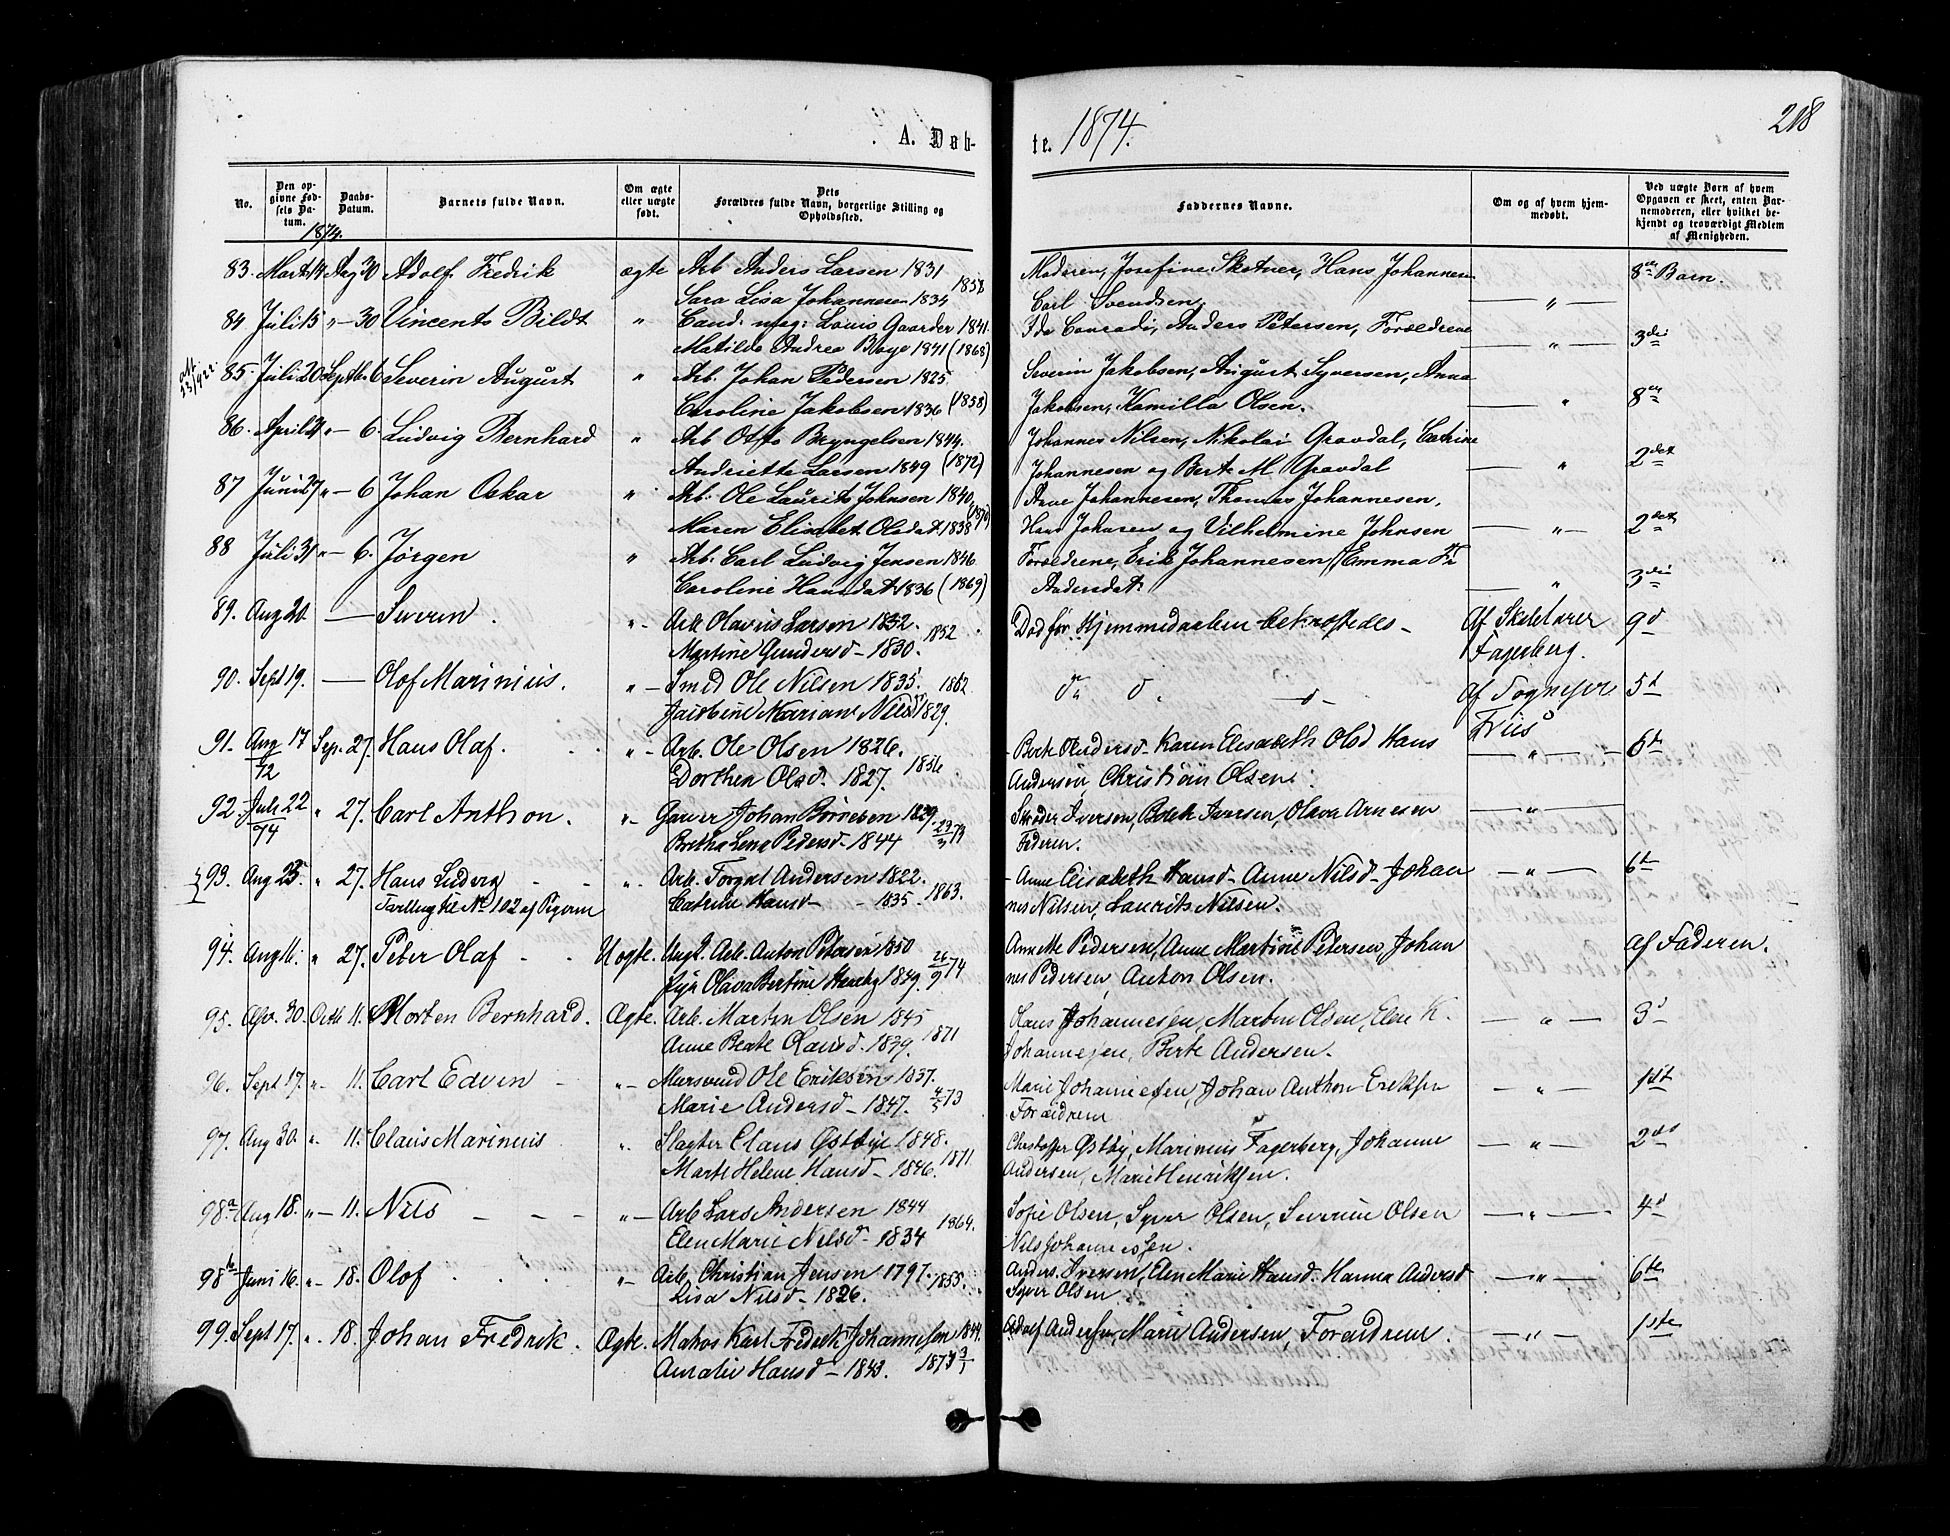 218
A. Døb-
te. 1874.
No.
Den opgivne Fødsels Datum.
Daabs-Datum.
Barnets fulde Navn.
Om ægte eller uægte født.
Dets Forældres fulde Navn, borgerlige Stilling og Opholdssted.
Faddernes Navne.
Om og af hvem hjemmedøbt.
Ved uægte Børn af hvem Opgaven er skeet, enten Barnemoderen, eller hvilket bekjendt og troværdigt Medlem af Menigheden.
1874.
83. Marts 14 Aug 30 Adolf Fredrik ægte Arb Anders Larsen 1831 Moderen, Josefine Skotner, Hans Johannesen 8de Barn.
Sara Lisa Johannesen 1834 1858 Carl Svendsen — " —
84 Juli 15 " — 30 Vincents Bildt " Cand. mag: Louis Gaarder 1841. Ida Conradi, Anders Petersen, Forældrene
Matilde Andrea Boye 1841 (1868) — " — 3die
85. Juli 20 Septbr 6 Severin August " Arb. Johan Pedersen 1825. Severin Jakobsen, August Syversen, Anna
Caroline Jakobsen 1836 (1858) Jakobsen, Kamilla Olsen. — " 8de
86. April 21 " — 6. Ludvig Bernhard " Arb Otto Bryngelsen 1844. Johannes Nilsen, Nikolai Gravdal, Catrine
Andriette Larsen 1849 (1872) Johannesen og Berte M Gravdal — " 2det
87 Juni 27 " — 6 Johan Oskar " Arb. Ole Laurits Johnsen 1840. Johannesen, Thomas Johannesen,
Maren Elisabet Olsdat 1838 Hans Johnsen og Vilhelmine Johnsen — " — 2det
88 Juli 31 " — 6. Jørgen " Arb. Carl Ludvig Jensen 1846 Forældrene, Erik Johannesen, Emma
Caroline Hansdat 1836 (1869) Andersdat. — " 3die
89. Aug 20. — Severin. " - Arb Olavus Larsen 1832. Død før Hjemmedaaben bekræftedes - Af Skolelærer 9d
Martine Gundersd — 1830. 1852 Fagerberg.
90. Sept 19. — Olof Marinius. " — Smed Ole Nilsen 1835. 1862 do do af Sogneprest 5t
Marian Nilsd 1829. Friis
91. Aug 17/72 Sep. 27. Hans Olaf. " - Arb. Ole Olsen 1826. - Berte Andersd. Karen Elisabeth Olsd Hans — " — 6te
Dorthea Olsd. 1827. 1856 Andersen, Christian Olsen.
92. Juli 22/74 " 27. Carl Anthon. " - Garver Johan Børresen 1839. Skræder Iversen, Berth Iversen, Olava Arnesen — " —
Bretha Lena Pedersd — 1844 Faderen.
93. Aug 25. " 27. Hans Ludvig " - Arb. Torgal Andersen 1822. - Anne Elisabeth Hansd — Anne Nilsd — Johan — " — 6t
Tvilling til No 102 af Pigerne Catrine Hansd — 1835. 1863. nes Nilsen, Laurits Nilsen.
94. Aug 16. " 27. Peter Olaf Uægte. Ungk. Arb. Anton Petersen 1850 Annette Pedersen, Anne Martine Petersen, Johan af Faderen.
Pige Olava Bertine 1849. 26/9 74 nes Pedersen, Anton Olsen.
95. Apr. 30. Octb 11. Morten Bernhard. Ægte. Arb. Martin Olsen 1845 Hans Johannesen, Martin Olsen, Elen K. — " — 3d
Anne Beate Olausd. 1839. 1871 Johannesen, Berte Andersen.
96. Sept 17. " - 11. Carl Edvin — " — Murersvend Ole Eriksen 1837. Marie Johannesen, Johan Anthon Eriksen — " — 1st
Marie Andersd — 1847. 73 Forældrene
97. Aug 30. " 11. Claus Marinius " Slagter Claus Østbye 1848. Christoffer Østby, Marinius Fagerberg, Johanne — " — 2den
Marte Helene Hansd — 1846. 1871 Andersen, Marie Henriksen.
98a Aug 18. " — 11. Nils — — — " — Arb Lars Andersen 1844 Sofie Olsen, Syver Olsen, Severine Olsen — " — 4d
Elen Marie Nilsd — 1834 1864. Nils Johannessen.
98b Juni 16. " - 18. Olof . . . " - Arb. Christian Jensen 1797. 1855. Anders Iversen, Elen Marie Hansd. Hanna Andersd — " — 6te
Lisa Nilsd — 1826. Syver Olsen
99. Sept 17. " . 18. Johan Fredrik. Ægte. Matros Karl Fredrik Johannesen 1844. Adolf Andersen, Marie Andersen, Forældrene. — " — 1ste
Auralie Hansd — 1843. 1873 3/1